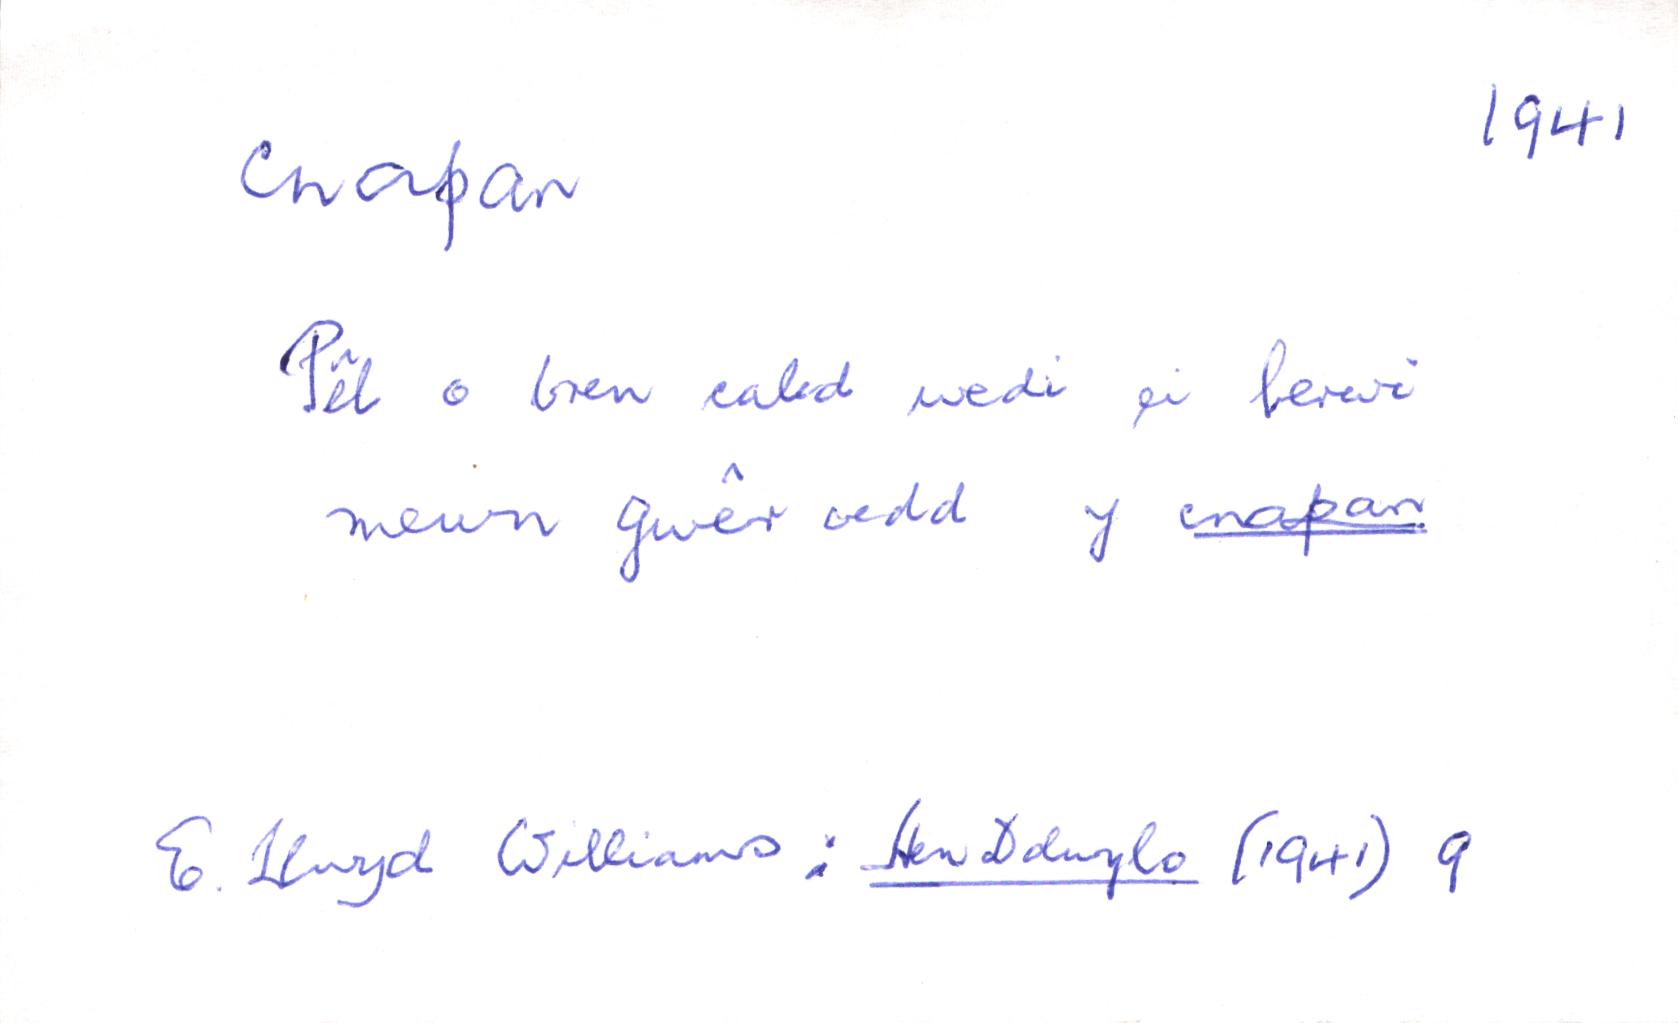 1941
Cnapan
Pêl o bren caled wedi ei berwi
mewn gwêr oedd y cnapan
E. Llwyd Williams : Hen Ddwylo (1941) 9